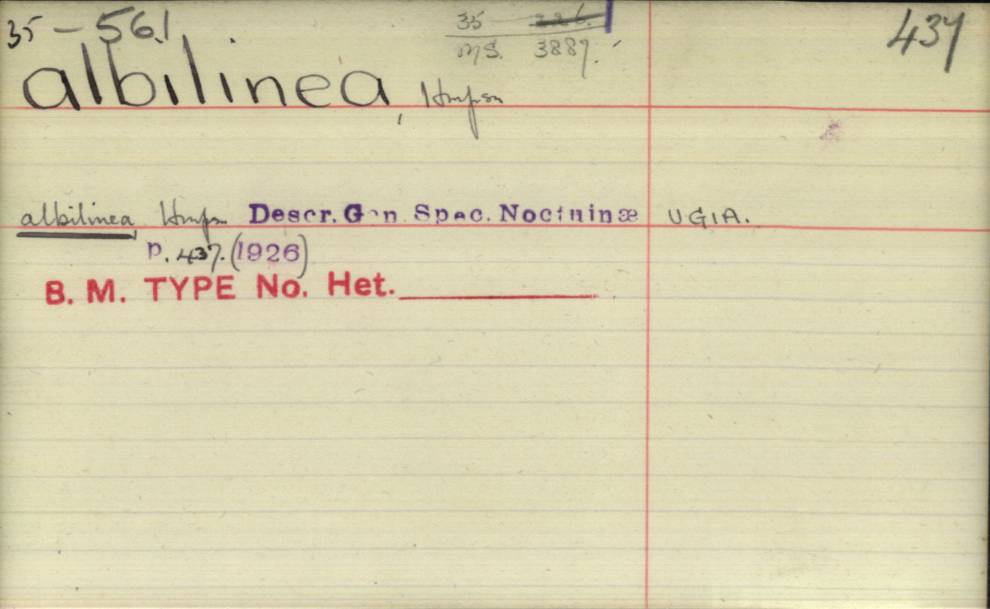 35 - 561
35 226.
MS. 3887.
437
albilinea, Hmpsn
albilinea, Hmpsn Descr. Gen Spec. Noctuinæ UGIA.
p. 437. (1926)
B. M. TYPE No. Het.